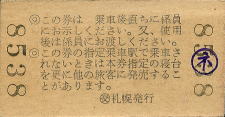 ◎この券は 乗車後直ちに係員
にお示しください。又、使用
後は係員にお渡しください。
◎この券の指定乗車駅で乗車さ
れないときは本券指定の寝台
を更に他の旅客に発売するこ
とがあります。
札幌発行
8538
8538